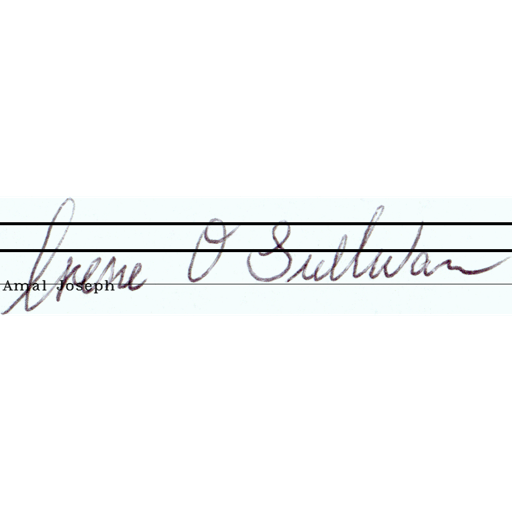 Irene O Sullivan
Amal Joseph